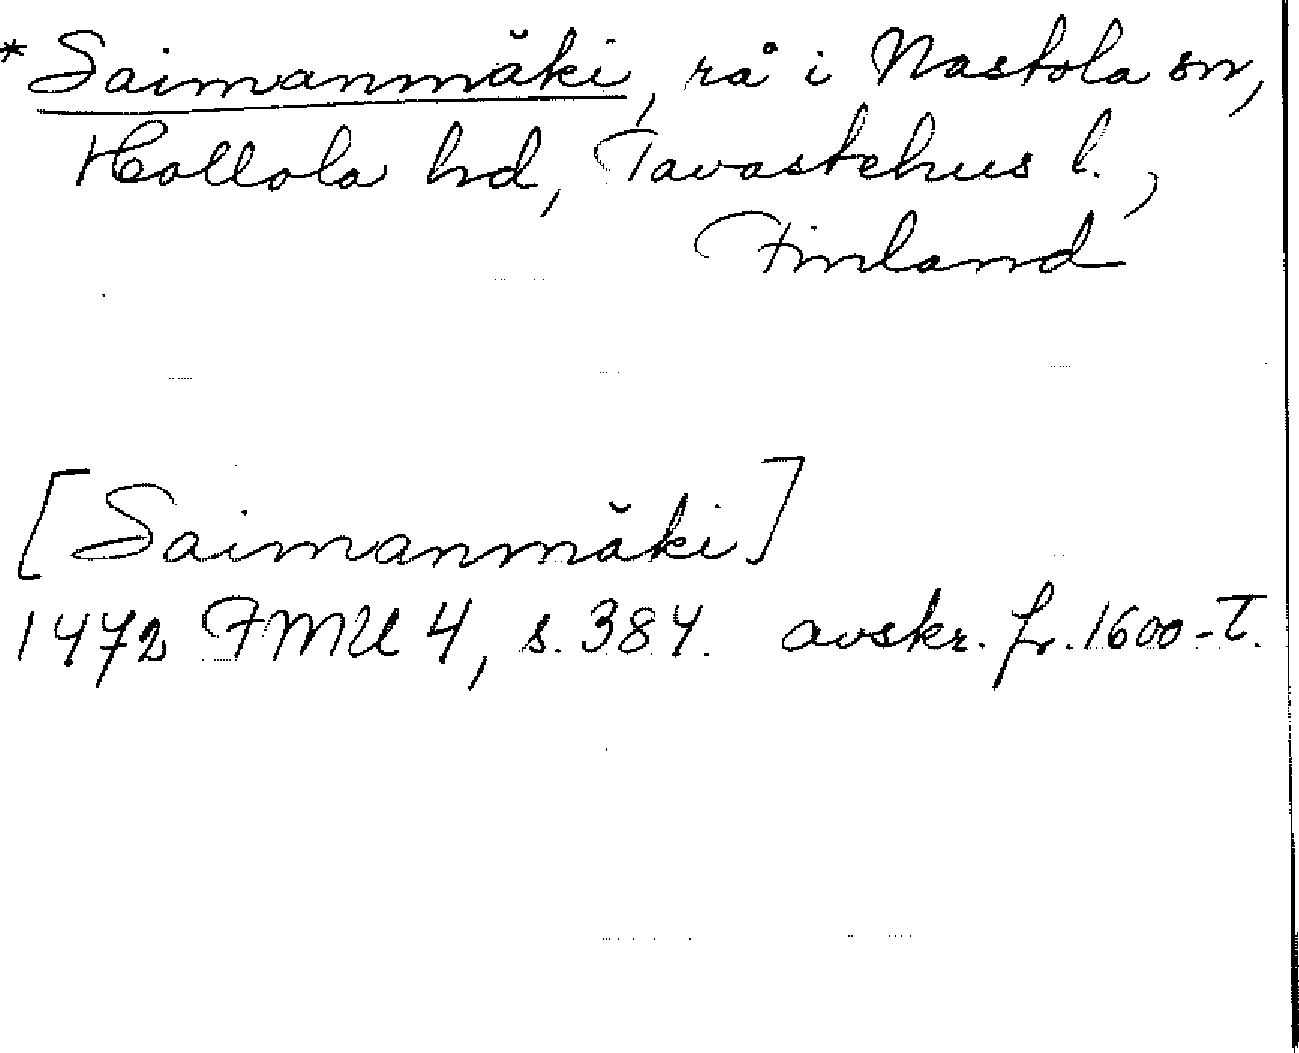 *Saimanmäki, rå i Nastola sn,
Hollola hd, Tavastehus l.,
Finland
[Saimanmäki]
1472 FMU 4, s. 384. avskr. fr. 1600-t.